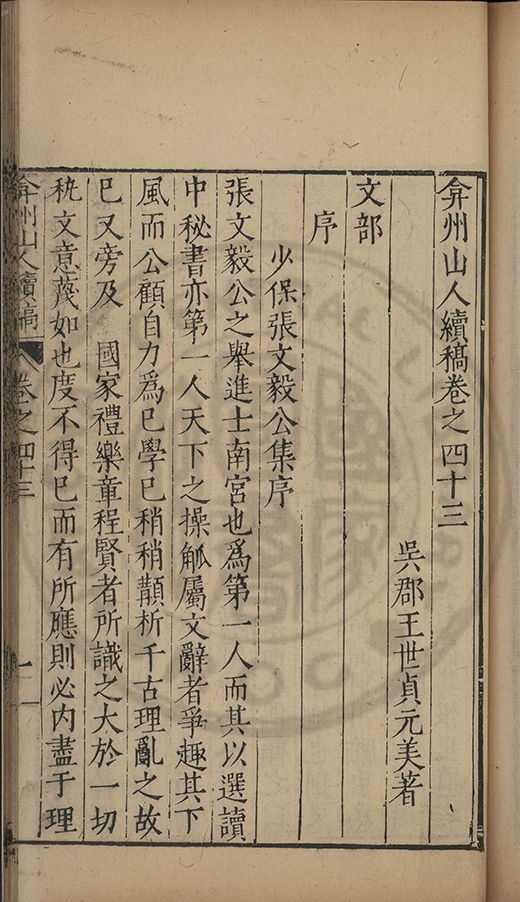 弇州山人續稿卷之四十三
吳郡王世貞元美著
文部
序
少保張文毅公集序
張文毅公之舉進士南宮也爲第一人而其以選讀
中秘書亦第一人天下之操觚屬文辭者爭趣其下
風而公顧自力爲已學已稍稍顜析千古理亂之故
已又旁及 國家禮樂章程賢者所識之大於一切
秇文意蔑如也度不得已而有所應則必内盡于理
弇州山人續稿 卷之四十三 一